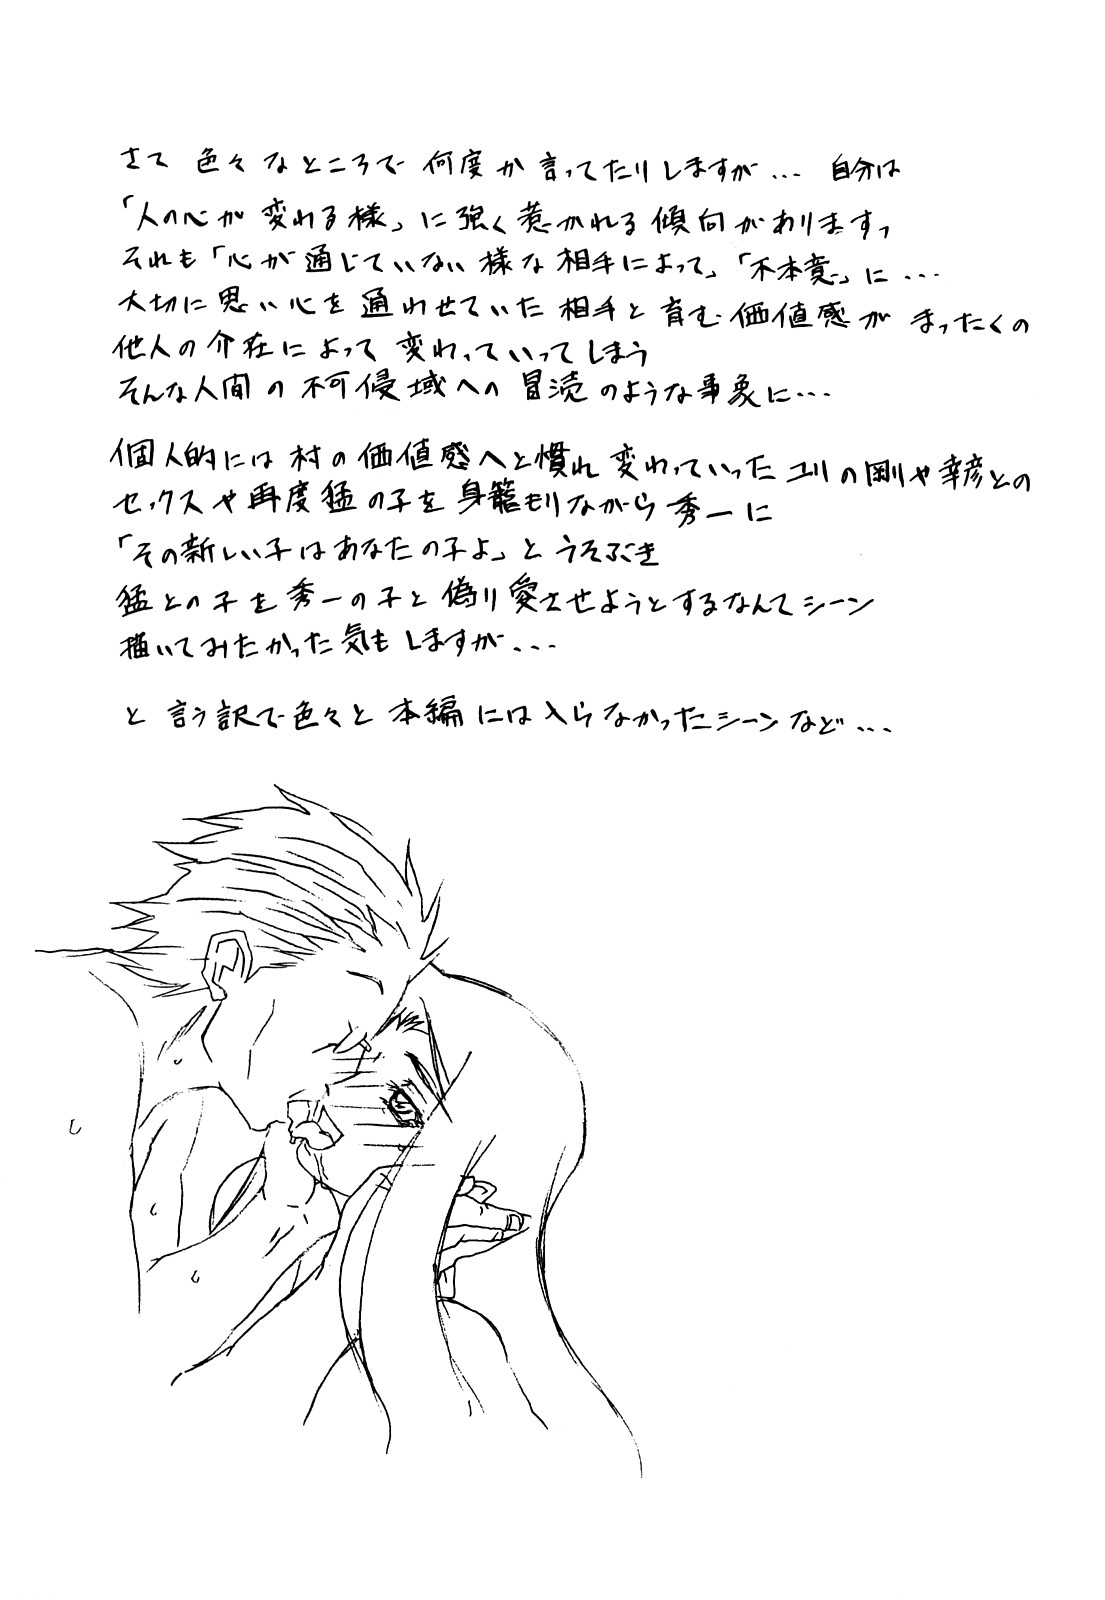 さて 色々なところで 何度か 言ってたりしますが... 自分は
「人の心が 変わる様」に強く惹かれる傾向があります。
それも「心が通じていない様な相手によって」「不本意」に...
大切に思い心を通わせていた相手と育む価値感が まったくの
他人の介在によって 変わっていってしまう
そんな人間の不可侵域への冒涜のような事象に...
個人的には村の価値感へと慣れ変わっていったユリの剛や幸彦との
セックスや再度猛の子を身籠もりながら秀一に
「その新しい子はあなたの子よ」とうそぶき
猛との子を秀一の子と偽り愛させようとするなんてシーン
描いてみたかった気もしますが...
と言う訳で色々と本編には入らなかったシーンなど...